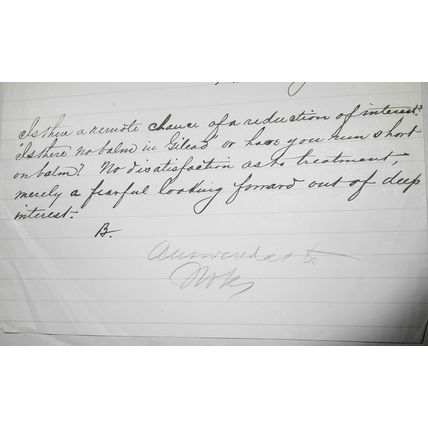 Is there a remote chance of a reduction of interest?
"Is there no balm in Gilead" or have you run short
on balm? No disatisfaction as to treatment,
merely a fearful looking forward out of deep
interest.
B.
Answered as to